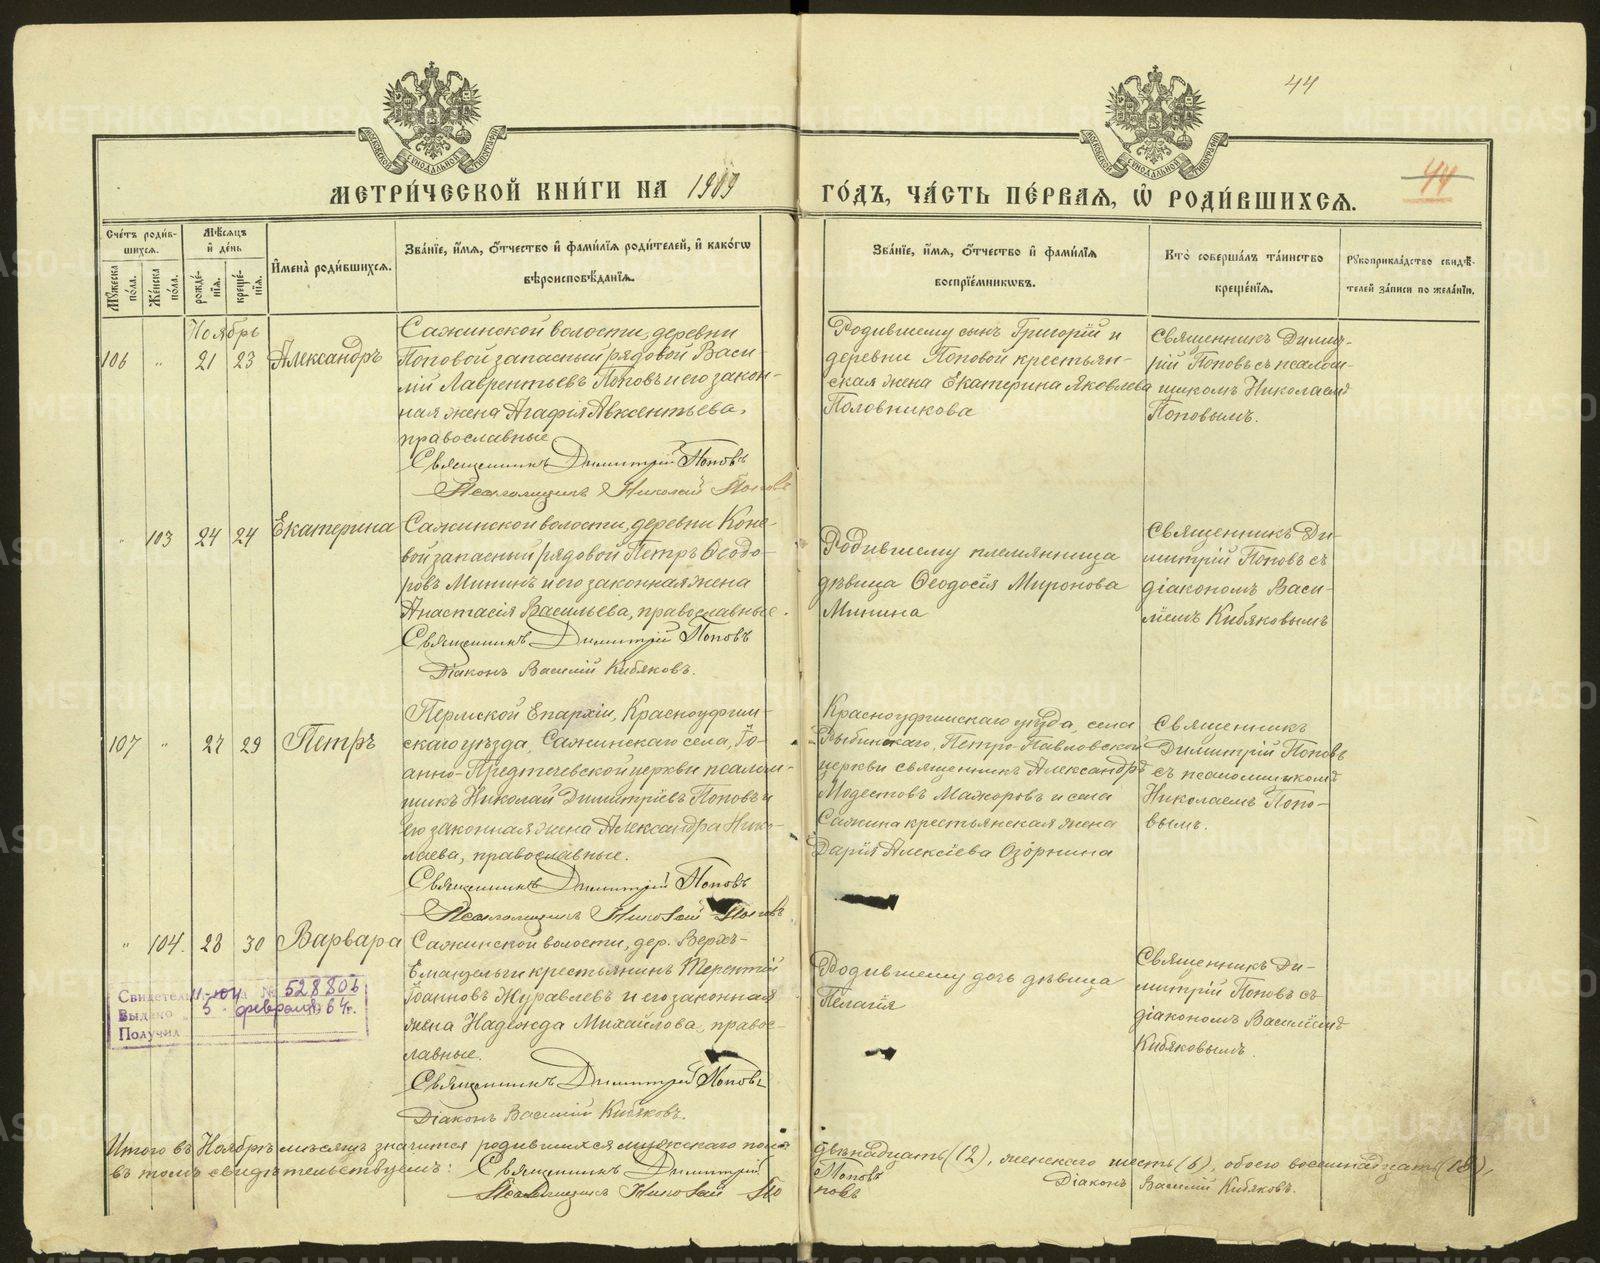 44
44
МЕТРИ́ЧЕСКОЙ КНИ́ГИ НА 1909
ГО́ДЪ, ЧА́СТЬ ПЕ́РВАЯ, Ѽ РОДИ́ВШИХСЯ.
Сче́тъ роди́вшихся.
Му́жеска по́ла.
Же́нска по́ла.
Мѣ́сяцъ и҆ де́нь
рожде́нїя.
креще́нїя.
И҆мена̀ роди́вшихся.
Зва́нїе, и҆́мя, ѻ҆́тчество и҆ фами́лїя роди́телей, и҆ како́гѡ
вѣроисповѣ́данїя.
Зва́нїе, и҆́мя, ѻ҆́тчество и҆ фами́лїя
воспрїе́мниковъ.
Кто̀ соверша́лъ та́инство
креще́нїя.
Рукоприкла́дство свидѣ́телей за́писи по жела́нїю.
Ноябрь
106 " 21 23 Александръ
Сажинской волости, деревни
Поповой запасный рядовой Васи-
лій Лаврентьевъ Поповъ и его закон-
ная жена Агафія Авксентьева,
православные
Священникъ Димитрій Поповъ
Псаломщикъ Николай Поповъ
Родившему сынъ Григорій и
деревни Поповой крестьян-
ская жена Екатерина Яковлева
Половникова
Священникъ Димит-
рій Поповъ съ псалом-
щикомъ Николаемъ
Поповымъ.
" 103 24 24 Екатерина
Сажинской волости, деревни Коне-
вой запасный рядовой Петръ Ѳеодо-
ровъ Мининъ и его законная жена
Анастасія Васильева, православные.
Священникъ Димитрій Поповъ
Діаконъ Василій Кибяковъ.
Родившему племянница
дѣвица Ѳеодосія Миронова
Минина
Священникъ Ди-
митрій Поповъ съ
діакономъ Васи-
ліемъ Кибяковымъ
107 " 27 29 Петръ
Пермской Епархіи, Красноуфим-
скаго уѣзда, Сажинскаго села, Іо-
анно-Предтечевской церкви псалом-
щикъ Николай Димитріевъ Поповъ и
его законная жена Александра Нико-
лаева, православные.
Священникъ Димитрій Поповъ
Псаломщикъ Николай Поповъ
Красноуфимскаго уѣзда, села
Рыбинскаго, Петро-Павловской
церкви священникъ Александръ
Модестовъ Мажоровъ и села
Сажина крестьянская жена
Дарія Алексіева Озорнина
Священникъ
Димитрій Поповъ
съ псаломщикомъ
Николаемъ Попо-
вымъ.
" 104. 28 30 Варвара
Сажинской волости, дер. Верхъ-
крестьянинъ Терентій
Іоанновъ Журавлевъ и его законная
жена Надежда Михайлова, правос-
лавные.
Священникъ Димитрій Поповъ
Діаконъ Василій Кибяковъ.
Родившему дочь дѣвица
Пелагія
Священникъ Ди-
митрій Поповъ съ
діакономъ Василіемъ
Кибяковымъ.
Свидетель II-ЮЛ № 528806
Выдано 5 февраля 1964г.
Получил
Итого въ Ноябрѣ мѣсяцѣ значится родившихся мужскаго пола двѣнадцать (12), женскаго шесть (6), обоего восемнадцать (18),
въ томъ свидѣтельствуемъ: Священникъ Димитрій Поповъ Діаконъ Василій Кибяковъ.
Псаломщикъ Николай Поповъ
METRIKI.GASO-URAL.RU